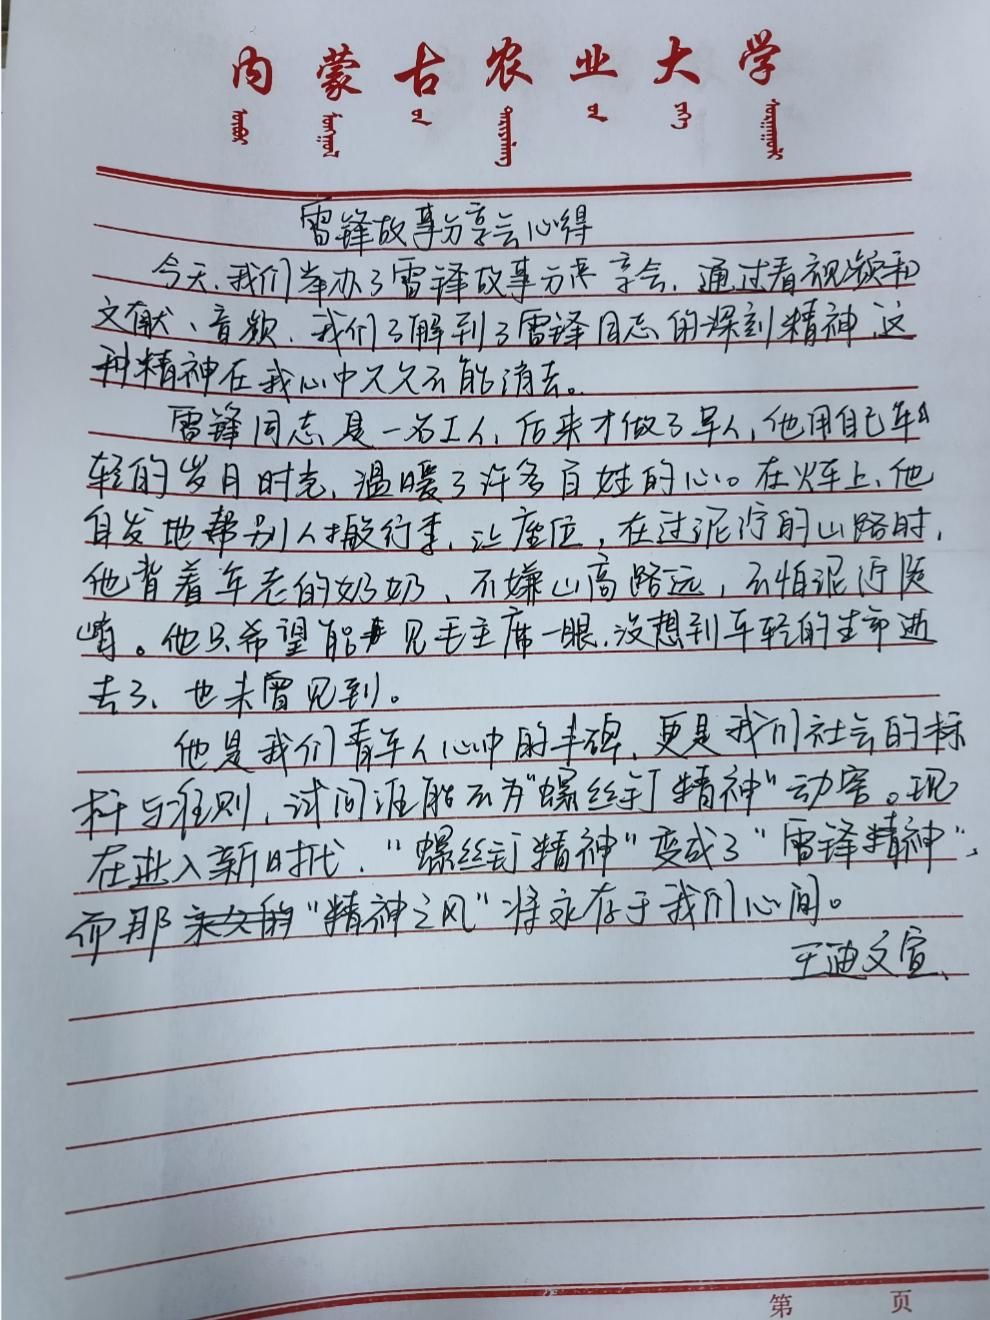 内蒙古农业大学
雷锋故事分享会心得
今天,我们举办了雷锋故事分享会,通过看视频和
文献、音频,我们了解到了雷锋同志的深刻精神,这
种精神在我心中久久不能消去。
雷锋同志是一名工人,后来才做了军人,他用自己年
轻的岁月时光,温暖了许多百姓的心。在火车上,他
自发地帮别人搬行李,让座位,在过泥泞的山路时,
他背着年老的奶奶,不嫌山高路远,不怕泥泞陡
峭。他只希望能见毛主席一眼,没想到年轻的生命逝
去了,也未曾见到。
他是我们青年人心中的丰碑,更是我们社会的标
杆与准则,试问谁能不为“螺丝钉精神”动容。现
在进入新时代,“螺丝钉精神”变成了“雷锋精神”,
而那“精神之风”将永存于我们心间。
王迪文宣
第 页